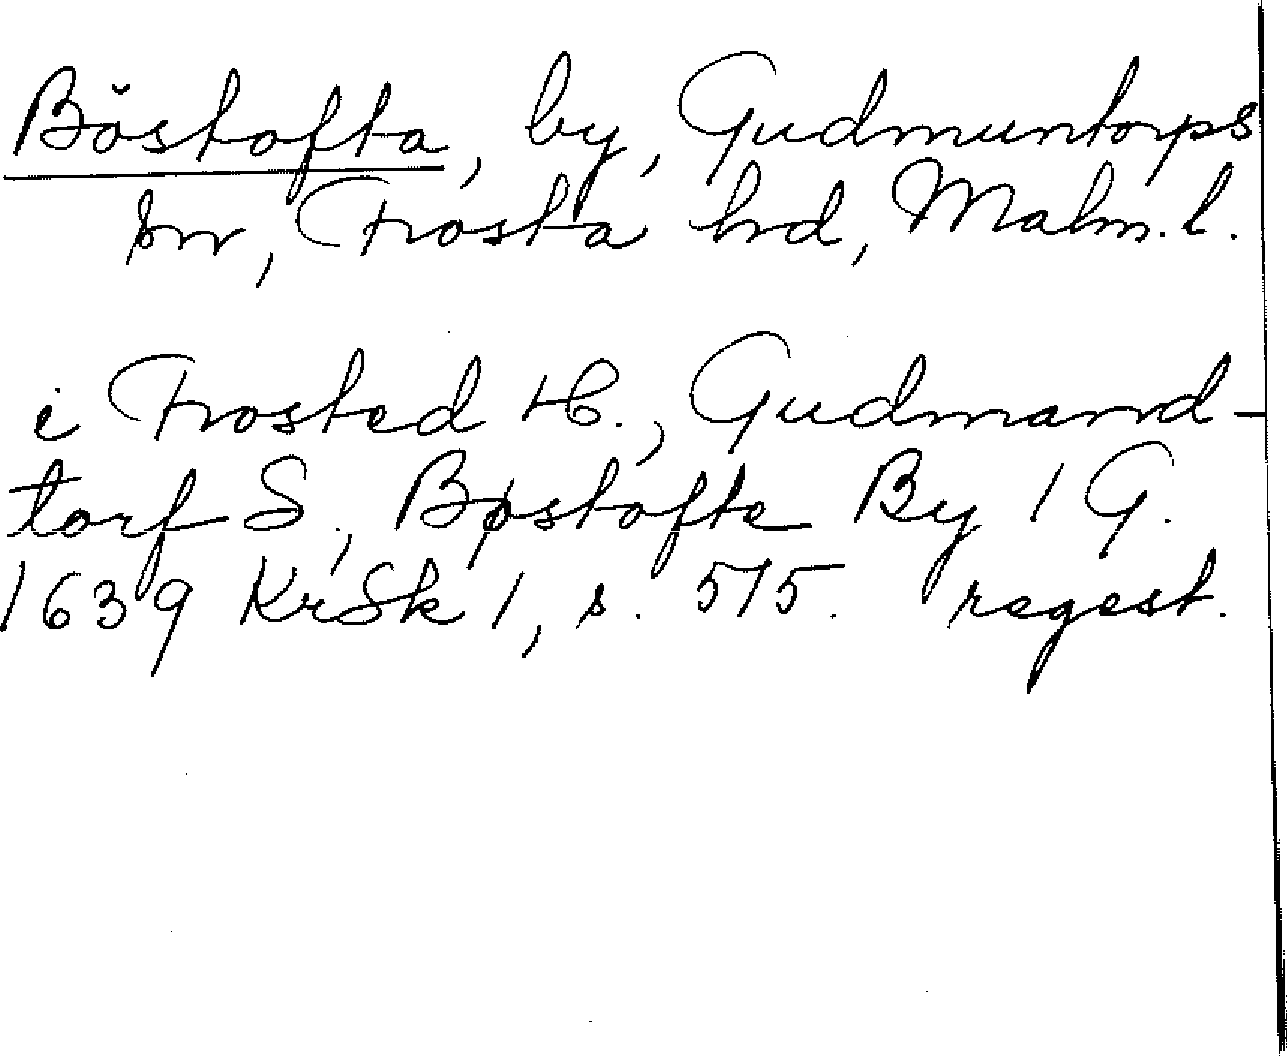 Böstofta, by, Gudmuntorps
sn, Frosta hrd, Malm. l.
i Frosted H., Gudmand-
torf S., Bøstofte By 1 G.
1639 KrSk 1, s. 575. regest.